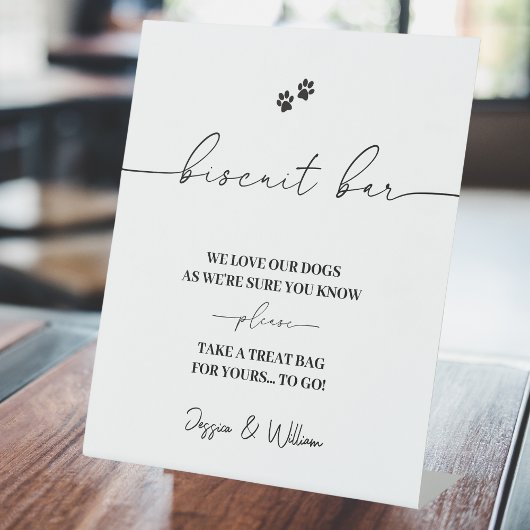 biscuit bar
WE LOVE OUR DOGS
AS WE'RE SURE YOU KNOW
please
TAKE A TREAT BAG
FOR YOURS... TO GO!
Jessica & William